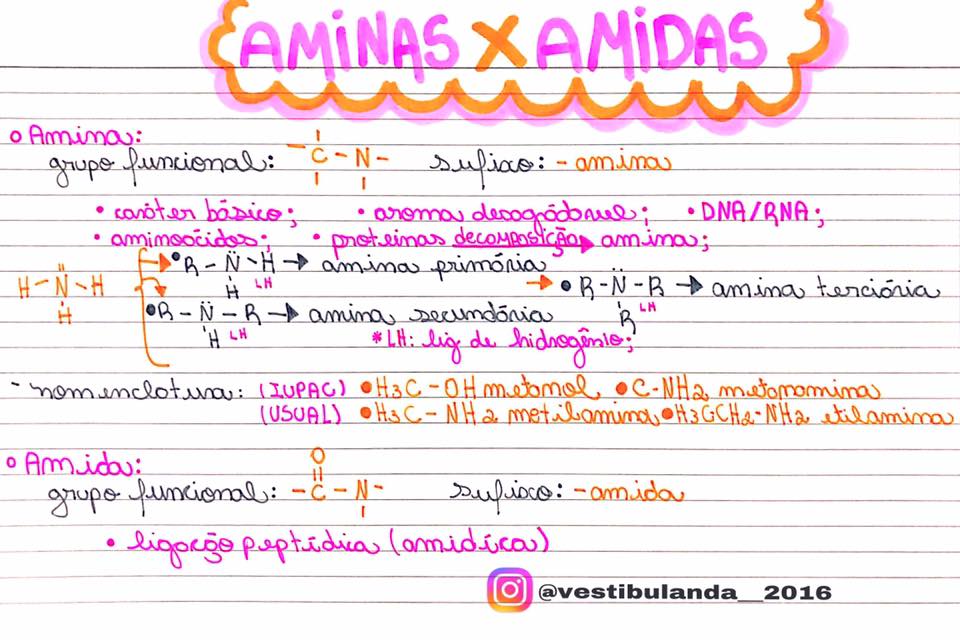 AMINAS X AMIDAS
o Amina:
grupo funcional: - C - N - sufixo: - amina
• caráter básico; • aroma desagradável; • DNA/RNA;
• aminoácidos; • proteínas DECOMPOSIÇÃO amina;
H - N - H
H
• R - N - H → amina primária
H LH
• R - N - R → amina secundária
H LH
• R - N - R → amina terciária
R LH
*LH: lig de hidrogênio;
- nomenclatura: (IUPAC) • H3C - OH metanol • C-NH2 metanamina
(USUAL) • H3C - NH2 metilamina • H3CCH2-NH2 etilamina
o Amida:
O
grupo funcional: - C - N - sufixo: - amida
• ligação peptídica (amídica)
@vestibulanda_2016